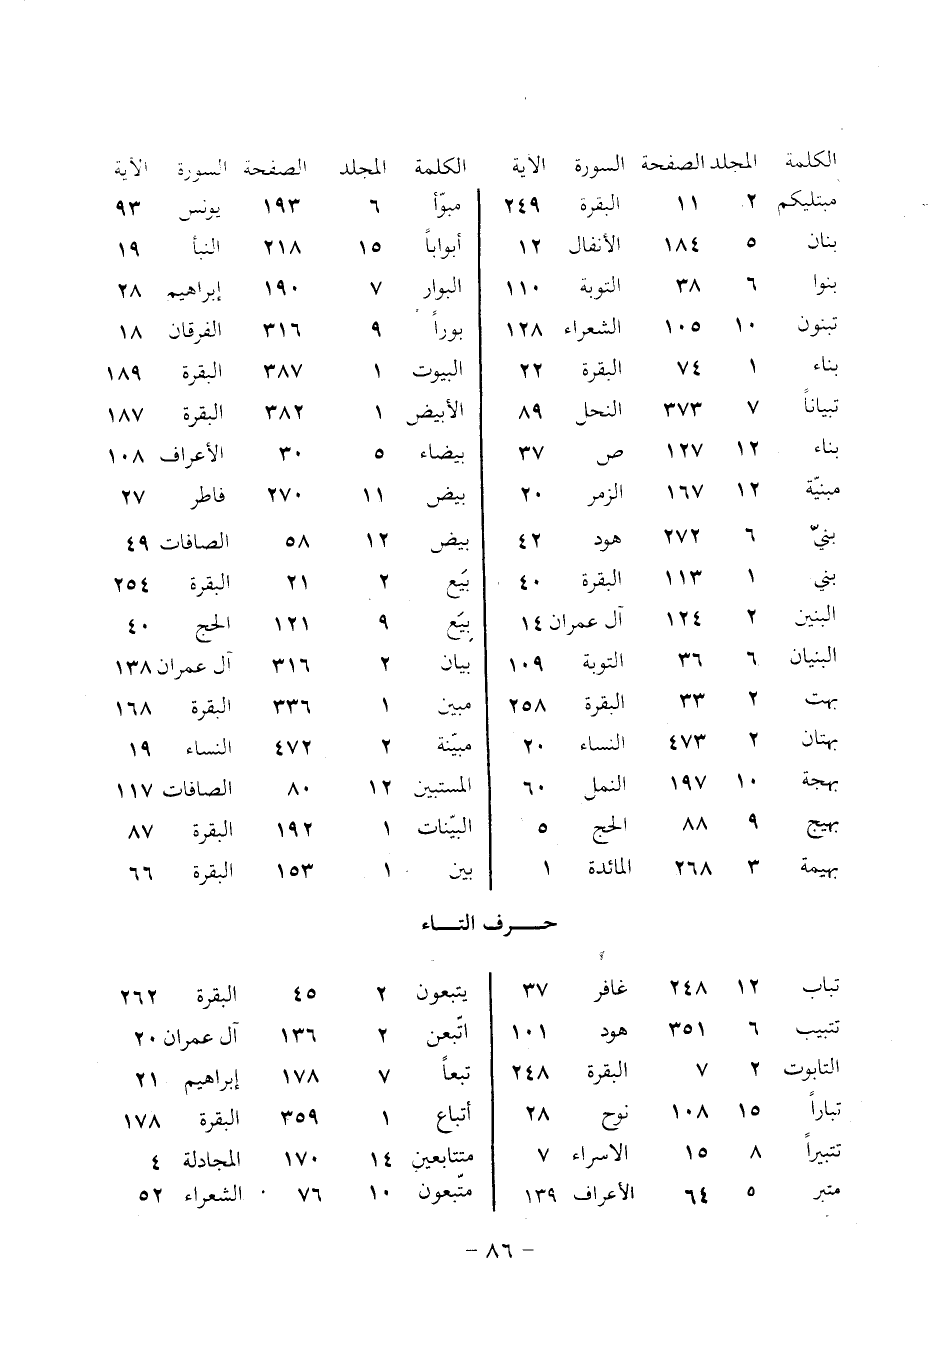 الكلمة المجلد الصفحة السورة الآية
مبتليكم ٢ ١١ البقرة ٢٤٩
بنان ٥ ١٨٤ الأنفال ١٢
بنوا ٦ ٣٨ التوبة ١١٠
تبنون ١٠ ١٠٥ الشعراء ١٢٨
بناء ١ ٧٤ البقرة ٢٢
تبياناً ٧ ٣٧٣ النحل ٨٩
بناء ١٢ ١٢٧ ص ٣٧
مبنيّة ١٢ ١٦٧ الزمر ٢٠
بنيّ ٦ ٢٧٢ هود ٤٢
بني ١ ١١٣ البقرة ٤٠
البنين ٢ ١٢٤ آل عمران ١٤
البنيان ٦ ٣٦ التوبة ١٠٩
بهت ٢ ٣٣ البقرة ٢٥٨
بهتان ٢ ٤٧٣ النساء ٢٠
بهجة ١٠ ١٩٧ النمل ٦٠
بهيج ٩ ٨٨ الحج ٥
بهيمة ٣ ٢٦٨ المائدة ١
الكلمة المجلد الصفحة السورة الآية
مبوّأ ٦ ١٩٣ يونس ٩٣
أبواباً ١٥ ٢١٨ النبأ ١٩
البوار ٧ ١٩٠ إبراهيم ٢٨
بوراً ٩ ٣١٦ الفرقان ١٨
البيوت ١ ٣٨٧ البقرة ١٨٩
الأبيض ١ ٣٨٢ البقرة ١٨٧
بيضاء ٥ ٣٠ الأعراف ١٠٨
بيض ١١ ٢٧٠ فاطر ٢٧
بيض ١٢ ٥٨ الصافات ٤٩
بَيع ٢ ٢١ البقرة ٢٥٤
بِيَع ٩ ١٢١ الحج ٤٠
بيان ٢ ٣١٦ آل عمران ١٣٨
مبين ١ ٣٣٦ البقرة ١٦٨
مبيّنة ٢ ٤٧٢ النساء ١٩
المستبين ١٢ ٨٠ الصافات ١١٧
البيّنات ١ ١٩٢ البقرة ٨٧
بين ١ ١٥٣ البقرة ٦٦
حرف التاء
تباب ١٢ ٢٤٨ غافر ٣٧
تتبيب ٦ ٣٥١ هود ١٠١
التابوت ٢ ٧ البقرة ٢٤٨
تباراً ١٥ ١٠٨ نوح ٢٨
تتبيراً ٨ ١٥ الاسراء ٧
متبر ٥ ٦٤ الأعراف ١٣٩
يتبعون ٢ ٤٥ البقرة ٢٦٢
اتّبعن ٢ ١٣٦ آل عمران ٢٠
تبعاً ٧ ١٧٨ إبراهيم ٢١
أتباع ١ ٣٥٩ البقرة ١٧٨
متتابعين ١٤ ١٧٠ المجادلة ٤
متّبعون ١٠ ٧٦ الشعراء ٥٢
- ٨٦ -